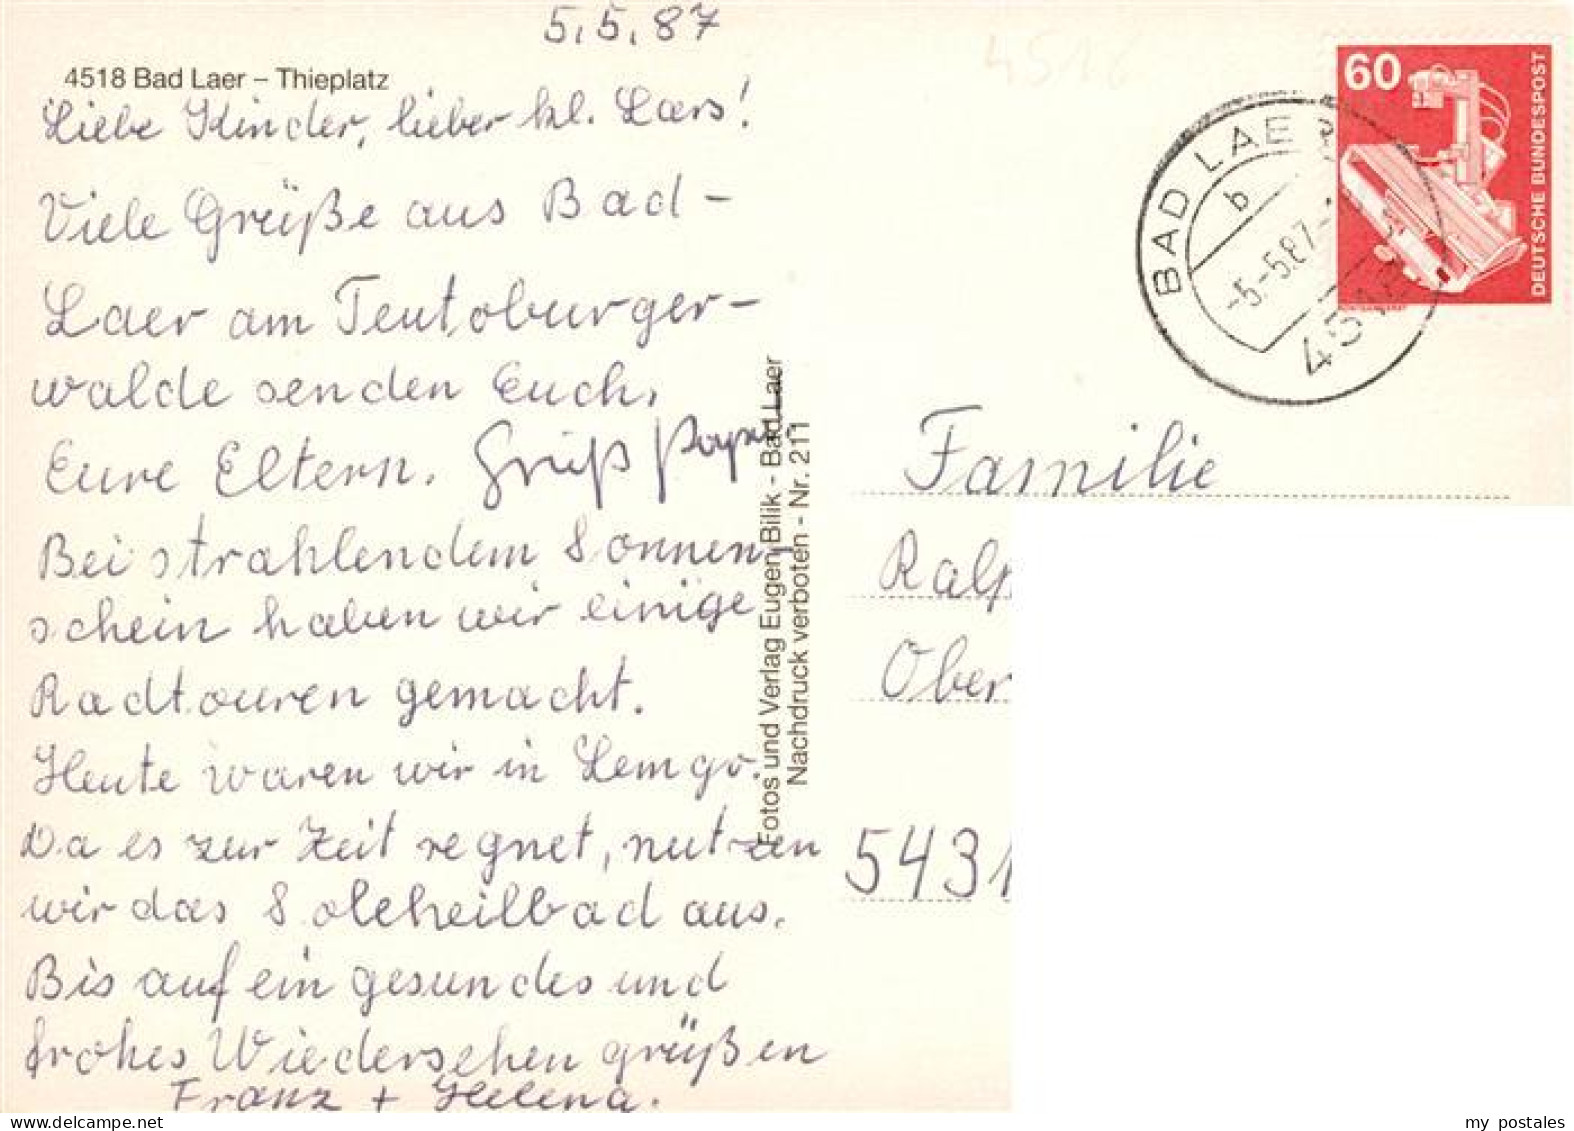 5.5.87
4518 Bad Laer – Thieplatz
Liebe Kinder, lieber kl. Lars!
Viele Grüße aus Bad –
Laer am Teutoburger –
walde senden Euch,
Eure Eltern. Gruß Papa
Bei strahlendem Sonnen-
schein haben wir einige
Radtouren gemacht.
Heute waren wir in Lemgo.
Da es zur Zeit regnet, nutzen
wir das Soleheilbad aus.
Bis auf ein gesundes und
frohes Wiedersehen grüßen
Franz + Helena.
Fotos und Verlag Eugen Bilik - Bad Laer
Nachdruck verboten - Nr. 211
4518
60
DEUTSCHE BUNDESPOST
BAD LAER
b
-5-5.87-
4518
Familie
Ralp
Ober
5431
my postales
www.delcampe.net